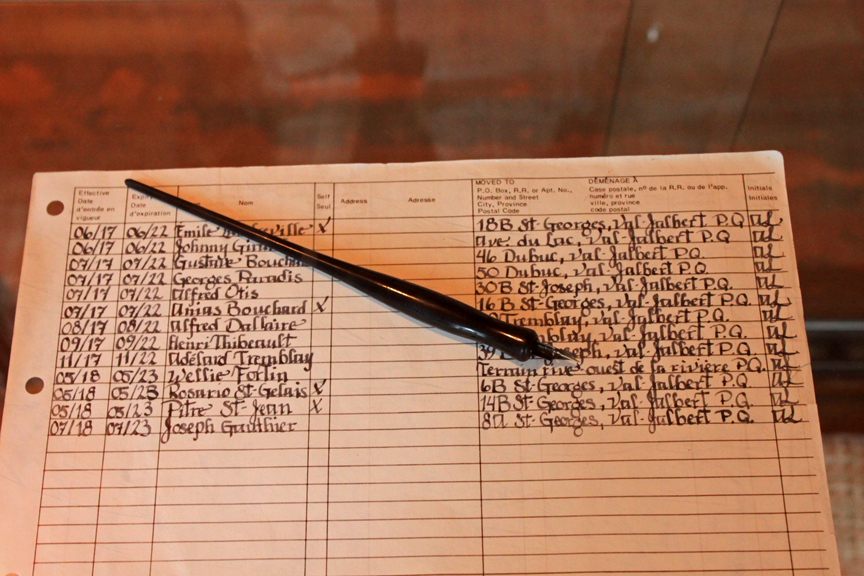 Effective Date d'entrée en vigueur Expiry Date d'expiration Nom Self Seul Address Adresse MOVED TO P.O. Box, R.R. or Apt. No., Number and Street City, Province Postal Code DÉMÉNAGÉ À Case postale, nº de la R.R. ou de l'app. numéro et rue ville, province code postal Initials Initiales
06/17 06/22 Emile X 18B St-Georges, Val-Jalbert P.Q
06/17 06/22 Johnny Ave. du Lac, Val-Jalbert P.Q
07/17 07/22 Gustave 46 Dubuc, Val-Jalbert P.Q.
07/17 07/22 Georges Paradis 50 Dubuc, Val-Jalbert P.Q
07/17 07/22 Alfred Otis 30B St-Joseph, Val-Jalbert P.Q
07/17 07/22 Bouchard X 16B St-Georges, Val-Jalbert P.Q.
08/17 08/22 Alfred Dallaire Tremblay, Val-Jalbert P.Q.
09/17 09/22 Henri Thibeault Val-Jalbert P.Q.
11/17 11/22 Adélard Tremblay Val-Jalbert P.Q.
05/18 05/23 Wellie Fortin ouest de la rivière P.Q.
05/18 05/23 Rosario St-Gelais X 6B St-Georges, Val-Jalbert P.Q
05/18 05/23 Pitre St-Jean X 14B St-Georges, Val-Jalbert P.Q
07/18 07/23 Joseph Gauthier 8A St-Georges, Val-Jalbert P.Q.